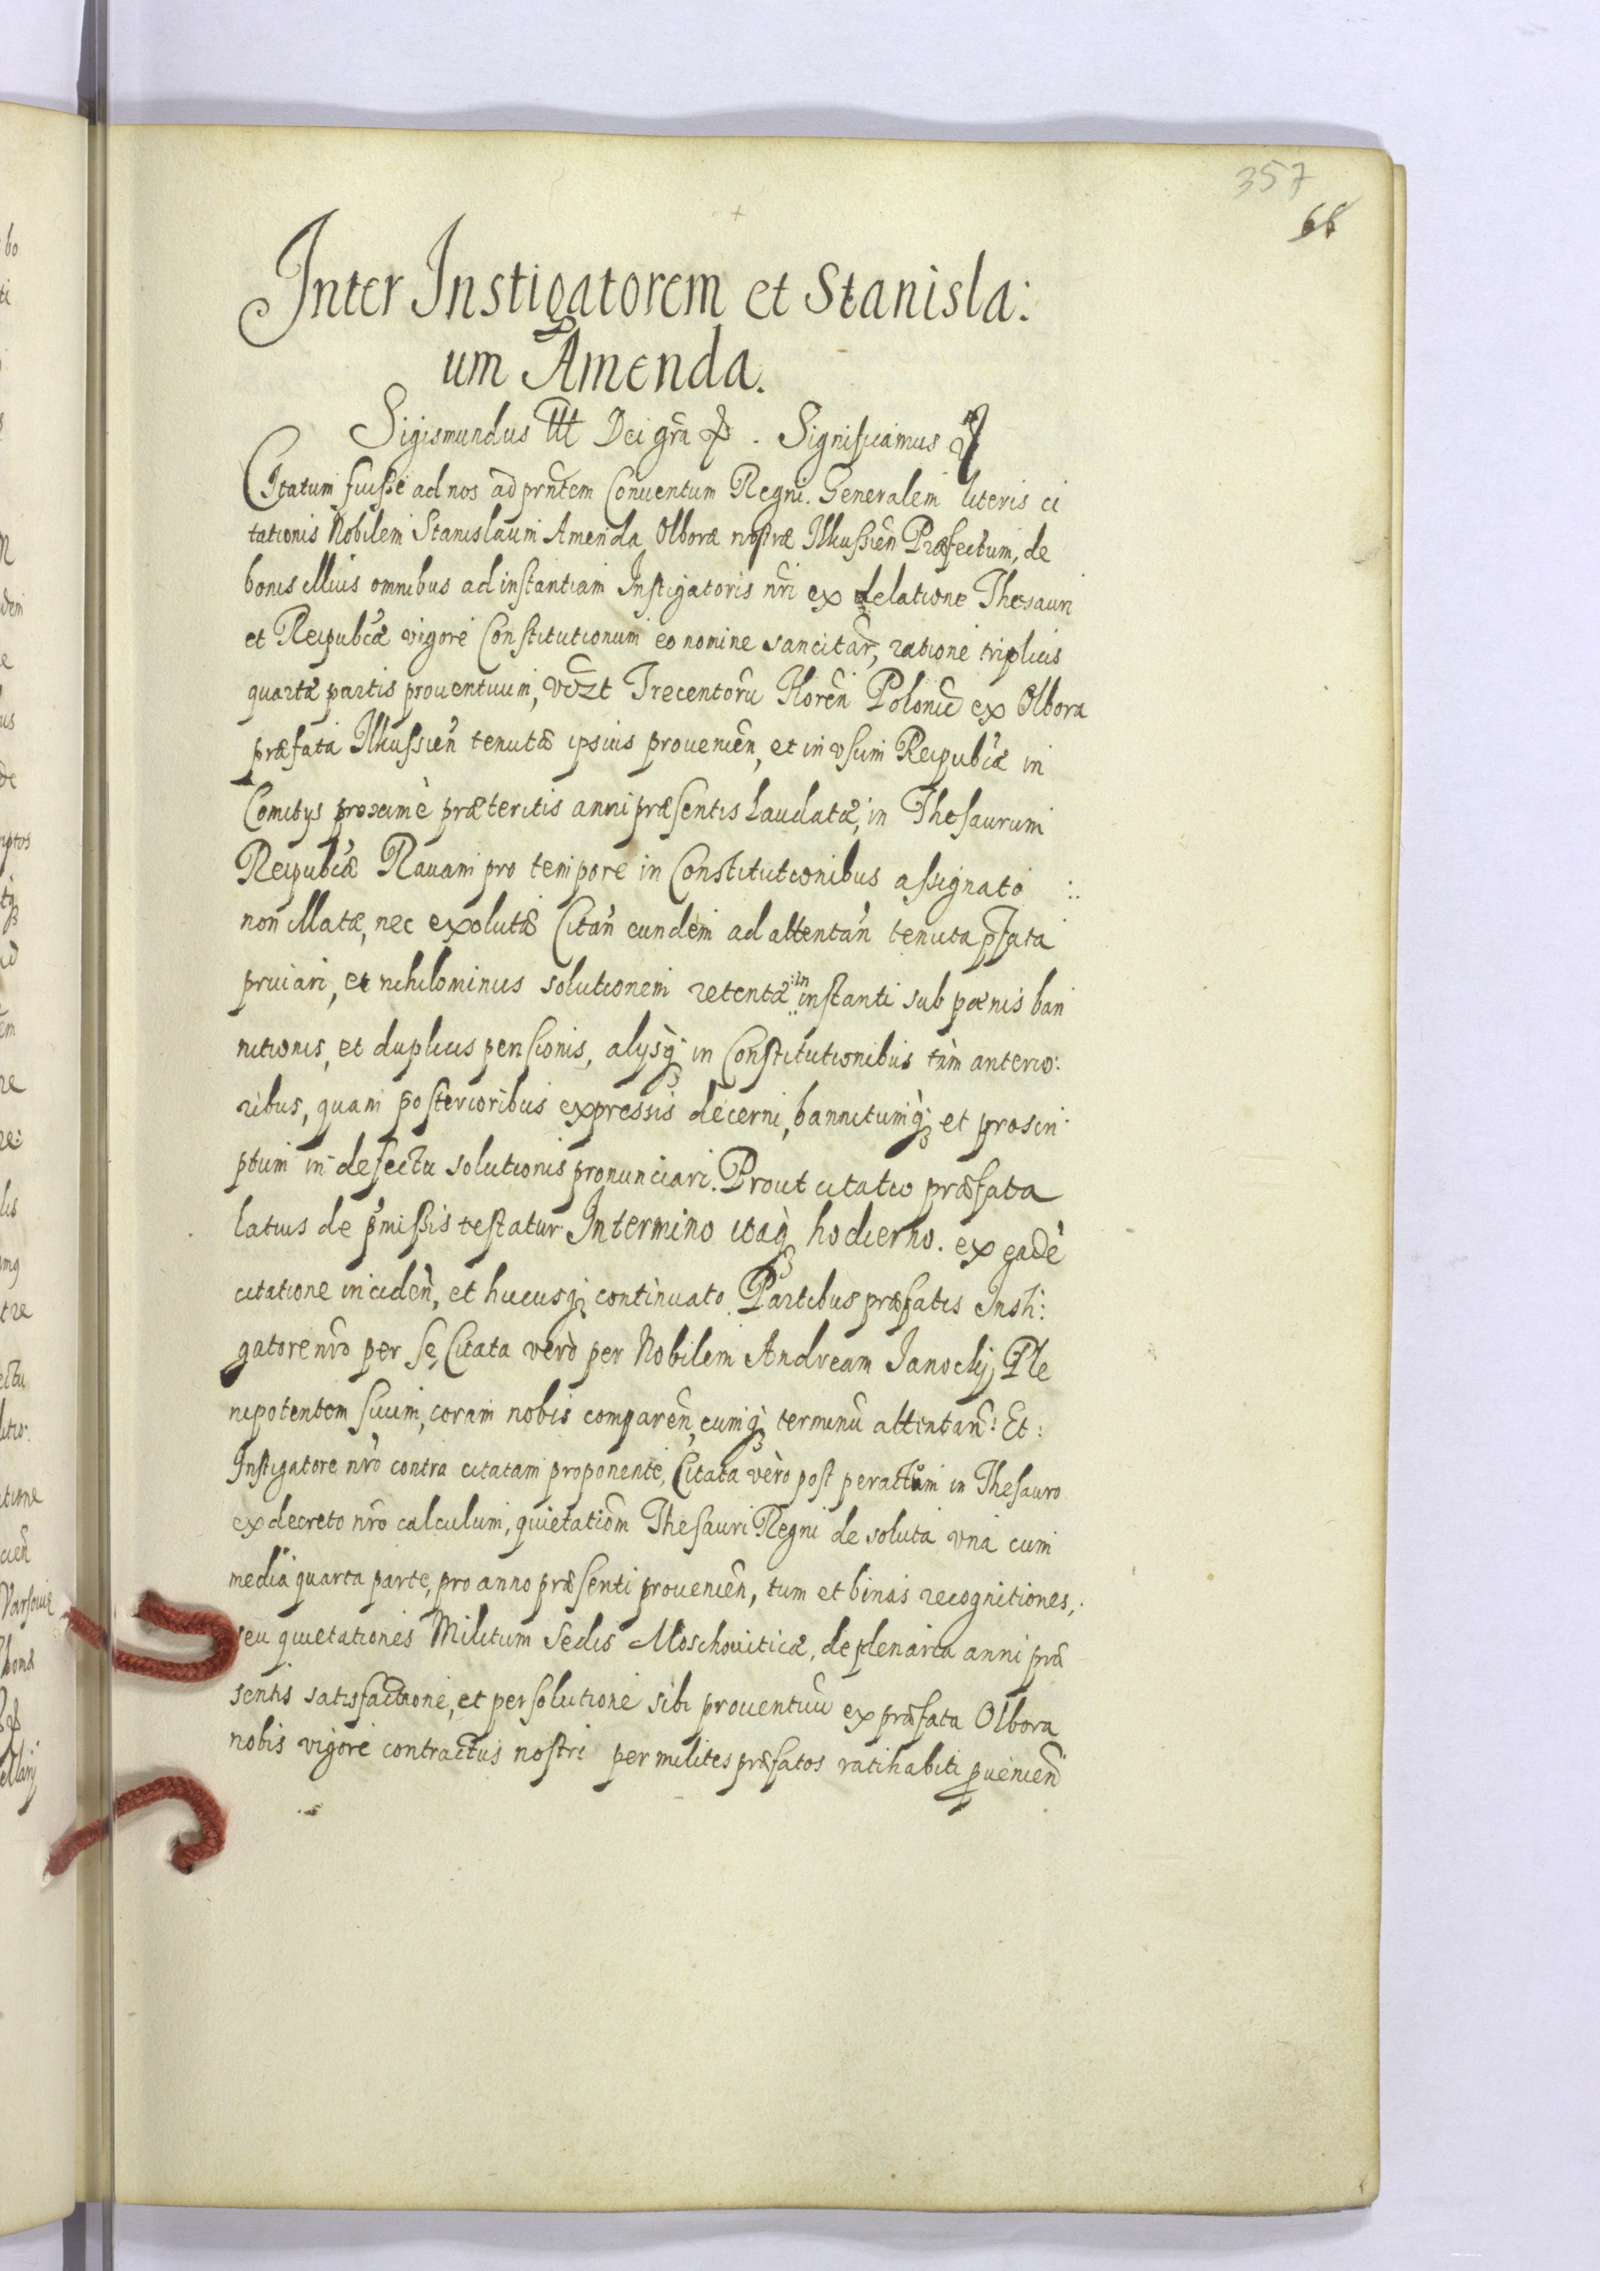 357
66
Inter Instigatorem et Stanisla:
um Amenda.
Sigismundus III Dei grã. Significamus
Citatum fuisse ad nos ad prñtem Conuentum Regni Generalem literis ci
tationis Nobilem Stanislaum Amenda Olboræ nostræ Ilkussien̄ Præfectum, de
bonis illius omnibus ad instantiam Instigatoris nr̃i ex delatione Thesauri
et Reipubcæ vigore Constitutionum eo nomine sancitar̃, ratione triplicis
quartæ partis prouentuum, vdzt Trecentorũ Floren̄ Polonic̃ ex Olbora
præfata Ilkussien̄ tenutæ ipsius prouenien̄, et in vsum Reipubcæ in
Comitys proximè præteritis anni præsentis Laudatæ, in Thesaurum
Reipubcæ Rauam pro tempore in Constitutionibus assignato
non illatæ, nec exolutæ Citan̄ eundem ad attentan̄ tenuta pfata
priuari, et nihilominus solutionem retentæ in instanti sub pœnis ban
nitionis, et duplicis pensionis, alysq; in Constitutionibus tùm anterio:
ribus, quam posterioribus expressis decerni, bannitumq; et proscri
ptum in defectu solutionis pronunciari. Prout citatio præfata
latius de p̄missis testatur In termino itaq; hodierno. ex eadẽ
citatione inciden̄, et hucusq; continuato. Partibus præfatis Insti:
gatore nr̃o per se, Citata verò per Nobilem Andream Janockij Ple
nipotentem suum, coram nobis comparen̄, eumq; terminũ attentan̄: Et:
Instigatore nr̃o contra citatam proponente, Citata vèro post peractum in Thesauro
ex decreto nr̃o calculum, quietatiõm Thesauri Regni de soluta vna cum
media quarta parte, pro anno præsenti prouenien̄, tum et binas recognitiones,
seu quietationes Militum Sedis Moschouiticæ, de plenaria anni præ
sentis satisfactione, et persolutione sibi prouentuũ ex præfata Olbora
nobis vigore contractus nostri per milites præfatos ratihabiti ꝓuenien̄